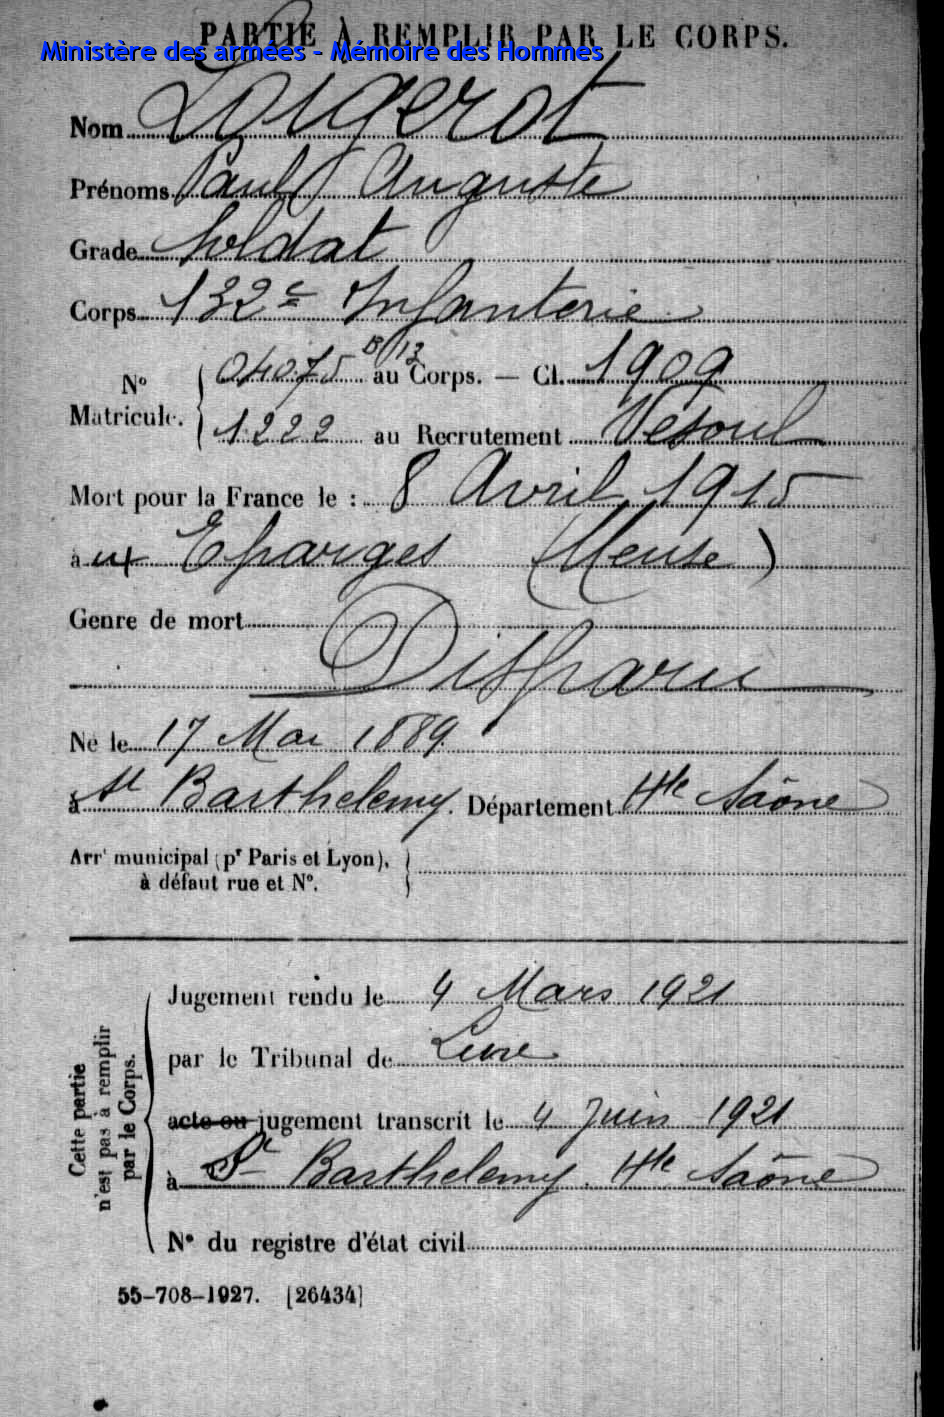 PARTIE À REMPLIR PAR LE CORPS.
Ministère des armées - Mémoire des Hommes
Nom Loigerot
Prénoms Paul Auguste
Grade Soldat
Corps 132e Infanterie
No Matricule. 04075 B/13 au Corps. — Cl. 1909
1222 au Recrutement Vesoul
Mort pour la France le : 8 Avril 1915
à ux Eparges (Meuse)
Genre de mort
Disparu
Né le 17 Mai 1889.
à St Barthelemy. Département Hte Saône
Arrt municipal (pr Paris et Lyon),
à défaut rue et No.
Cette partie
n'est pas à remplir
par le Corps.
Jugement rendu le 4 Mars 1921
par le Tribunal de Lure
acte ou jugement transcrit le 4 Juin 1921
à St Barthelemy. Hte Saône
No du registre d'état civil
55-708-1927. [26434]